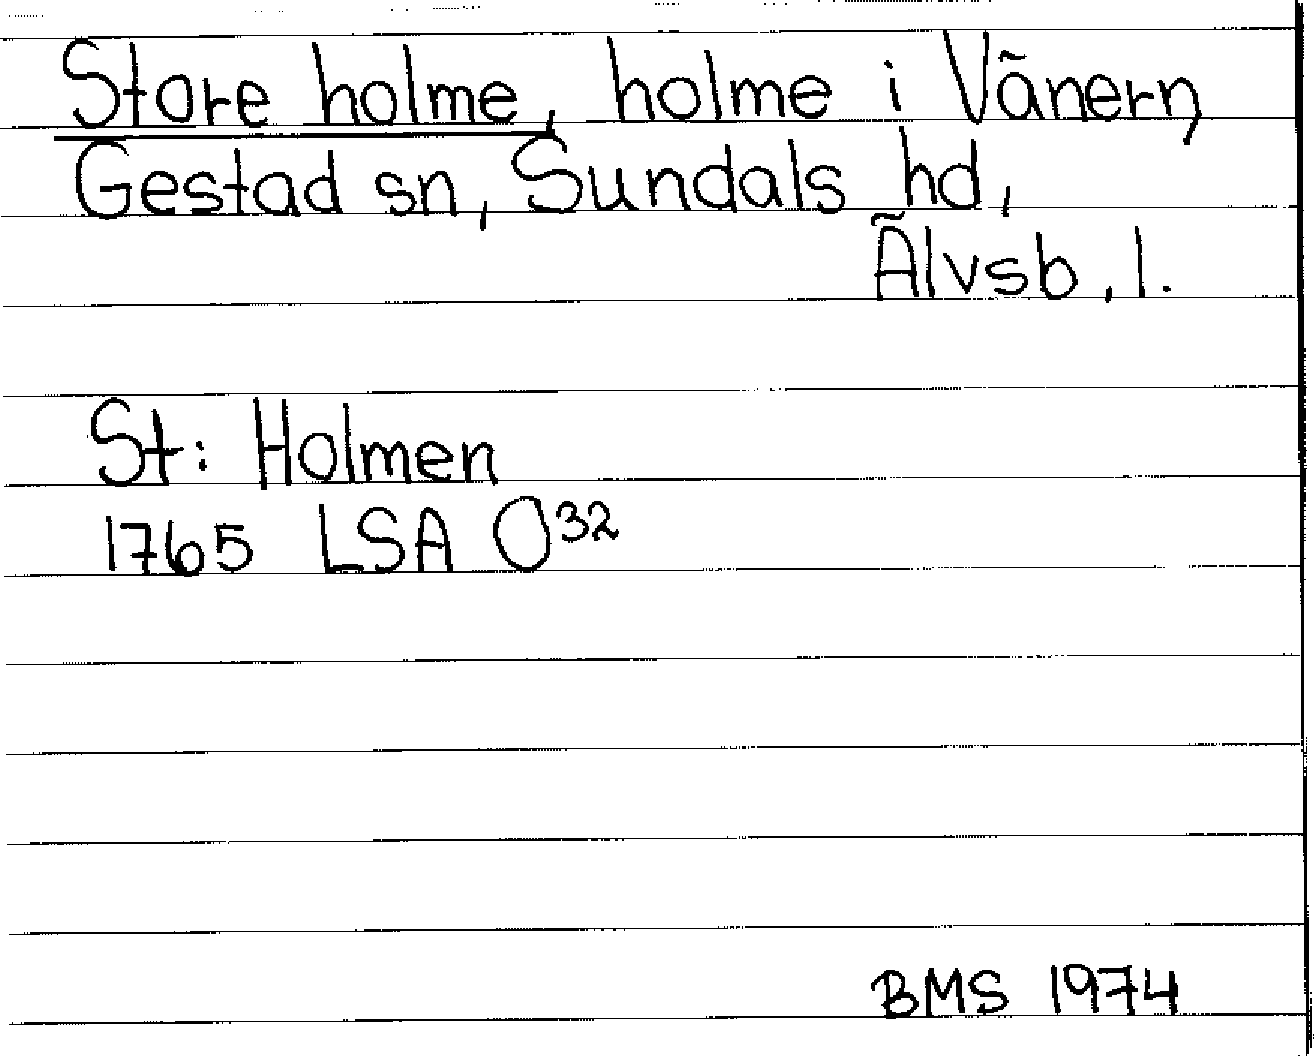 Store holme, holme i Vänern,
Gestad sn, Sundals hd,
Älvsb. l.
St: Holmen
1765 LSA O32
BMS 1974